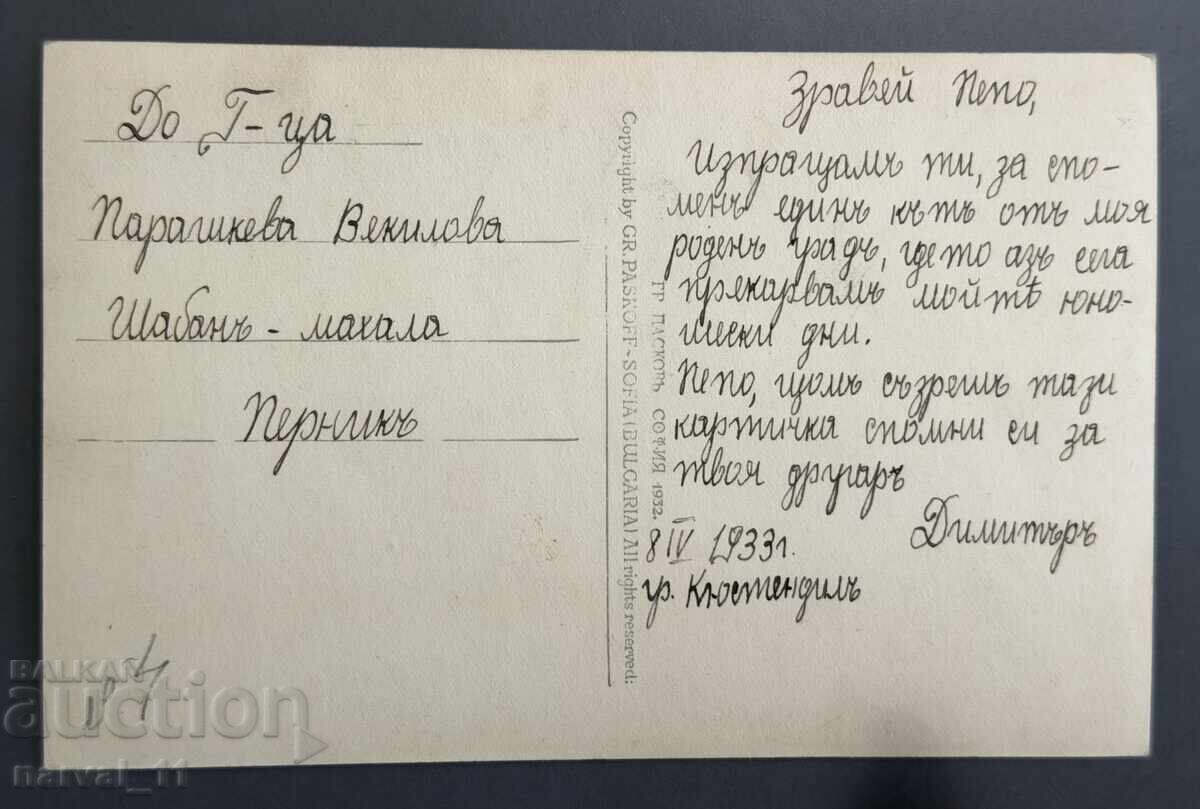 До Г-ца
Парашкева Векилова
Шабанъ - махала
Перникъ
Copyright by GR. PASKOFF ~ SOFIA (BULGARIA) All rights reserved:
ГР ПАСКОВЪ СОФИЯ 1932.
Здравей Пепо,
Изпращамъ ти, за спо-
менъ единъ кѫтъ отъ моя
роденъ градъ, гдето азъ сега
прекарвамъ мойтѣ юно-
шески дни.
Пепо, щомъ съзрешъ тази
картичка спомни си за
твоя другаръ
Димитъръ
8 IV 1933 г.
гр. Кюстендилъ
BALKAN
auction
narval_11